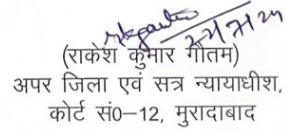 (राकेश कुमार गौतम)
अपर जिला एवं सत्र न्यायाधीश,
कोर्ट सं0–12, मुरादाबाद